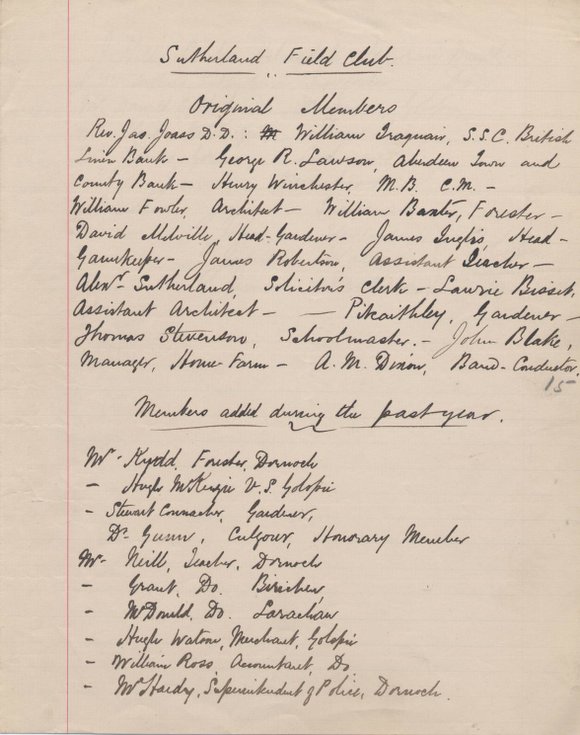 Sutherland Field Club.
Original Members
Rev. Jas. Joass D.D.: William Traquair, S.S.C. British
Linen Bank – George R. Lawson, Aberdeen Town and
County Bank – Henry Winchester, M.B. C.M. –
William Fowler, Architect – William Baxter, Forester –
David Melville, Head-Gardener – James Inglis, Head-
Gamekeeper – James Robertson, Assistant Teacher –
Alexr. Sutherland, Solicitor's Clerk – Lawrie Bisset,
Assistant Architect – — Pitcaithley, Gardener –
Thomas Stevenson, Schoolmaster. – John Blake,
Manager, Home-Farm – A. M. Dixon, Band-Conductor.
15
Members added during the past year.
Mr. Kydd, Forester, Dornoch
– Hugh McKenzie V.S. Golspie
– Stewart Gardener,
Dr. Gunn, Culgour, Honorary Member
Mr. Neill, Teacher, Dornoch
– Grant, Do. Birichen,
– McDonald, Do. Larachan
– Hugh Watson, Merchant, Golspie
– William Ross, Accountant, Do
– McHardy, Superintendent of Police, Dornoch.